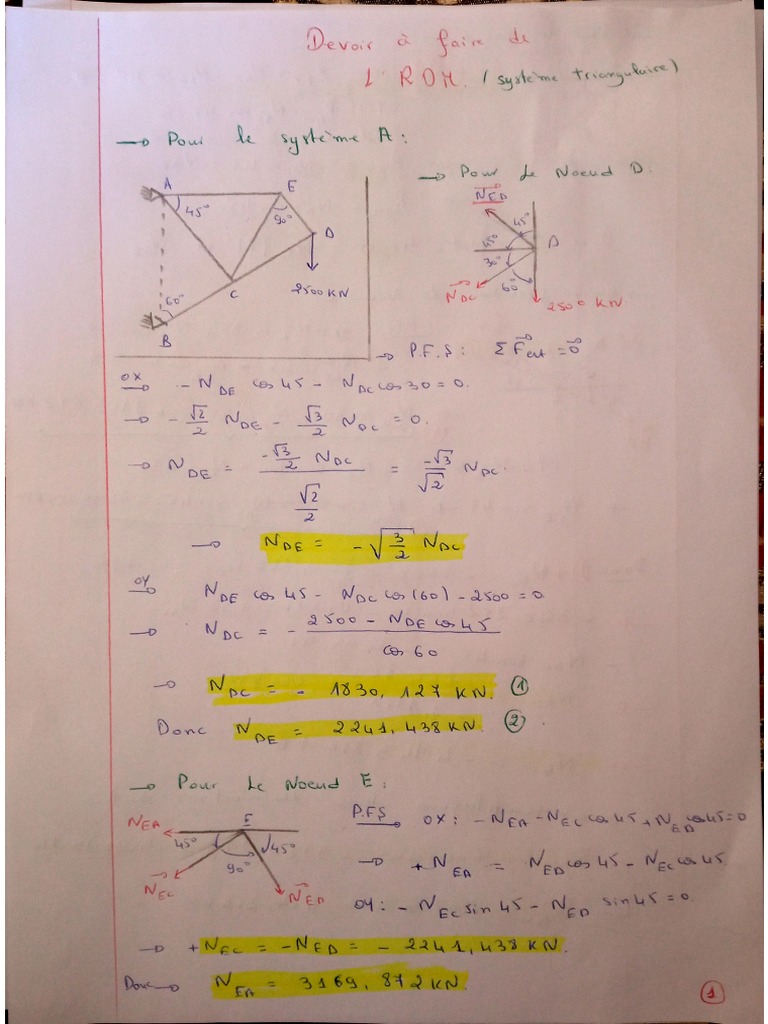 Devoir à faire de
1 RDM. (système triangulaire)
→ Pour le système A:
→ Pour le Noeud D:
A
E
45°
90°
D
C
2500 KN
60°
B
N⃗ED
45°
45°
D
30°
60°
N⃗DC
2500 KN
→ P.F.S: Σ F⃗ext = 0⃗
OX→ - NDE cos 45 - NDC cos 30 = 0.
→ - √2/2 NDE - √3/2 NDC = 0.
→ NDE = (-√3/2 NDC)/(√2/2) = -√3/√2 NDC.
→ NDE = - √(3/2) NDC
OY→ NDE cos 45 - NDC cos (60) - 2500 = 0
→ NDC = - (2500 - NDE cos 45)/(cos 60)
→ NDC = - 1830, 127 KN. ①
Donc NDE = 2241, 438 KN. ②
→ Pour le Noeud E:
E
NEA
45°
45°
90°
N⃗EC
N⃗ED
P.F.S→ OX: - NEA - NEC cos 45 + NED cos 45 = 0
→ + NEA = NED cos 45 - NEC cos 45
OY: - NEC sin 45 - NED sin 45 = 0
→ + NEC = - NED = - 2241, 438 KN.
Donc→ NEA = 3169, 872 KN.
①